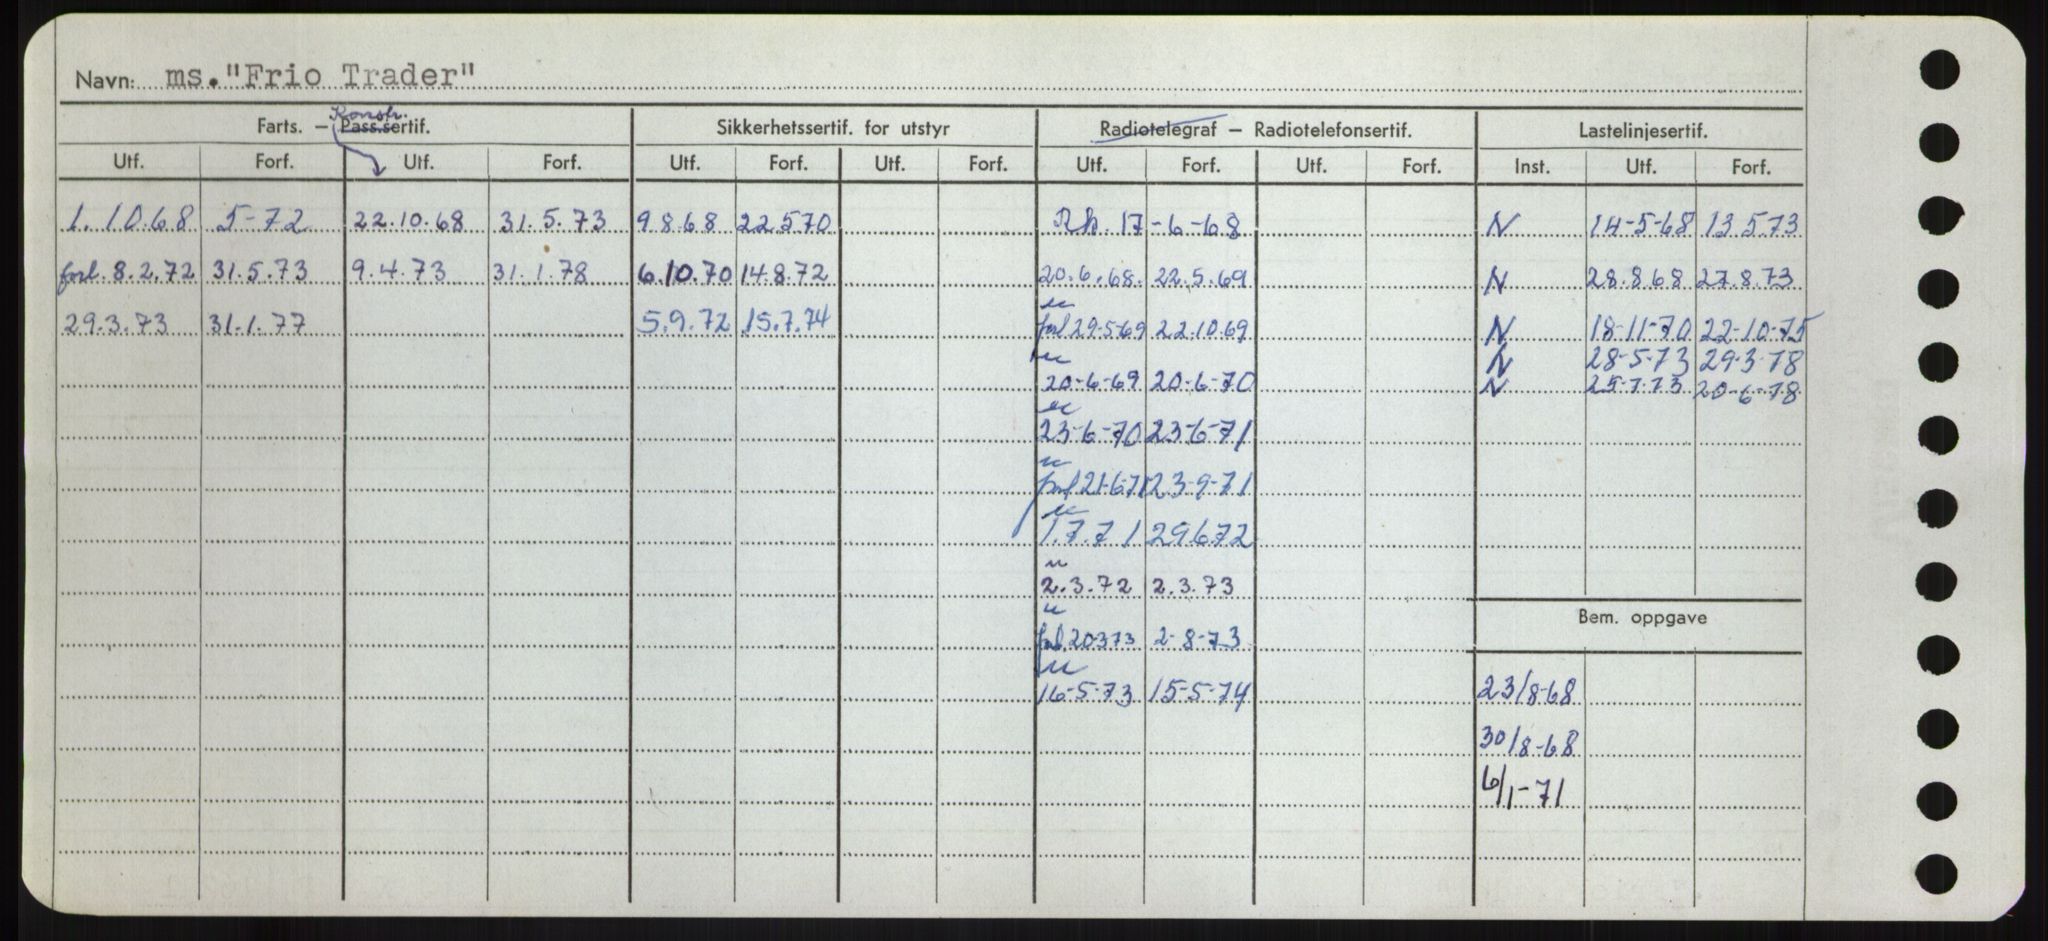 Navn: ms. "Frio Trader"
Konstr.
Farts. — Pass.sertif. Sikkerhetssertif. for utstyr Radiotelegraf — Radiotelefonsertif. Lastelinjesertif.
Utf. Forf. Utf. Forf. Utf. Forf. Utf. Forf. Utf. Forf. Utf. Forf. Inst. Utf. Forf.
1. 10.68 5-72 22.10.68 31.5.73 9.8.68 22.5.70 17-6-68 N 14-5-68 13.5.73
forl. 8.2.72 31.5.73 9.4.73 31.1.78 6.10.70 14.8.72 20.6.68. 22.5.69 N 28.8.68 27.8.73
29.3.73 31.1.77 5.9.72 15.7.74 forl 29-5-69 22.10.69 N 18-11-70 22-10-75
N 28-5-73 29-3-78
20-6-69 20-6-70 N 25-7-73 20-6-78
23-6-70 23-6-71
forl 21-6-71 23-9-71
1.7.71 29.6.72
2.3.72 2.3.73
Bem. oppgave
forl. 20-3-73 2-8-73
16-5-73 15-5-74 23/8-68
30/8-68
6/1-71